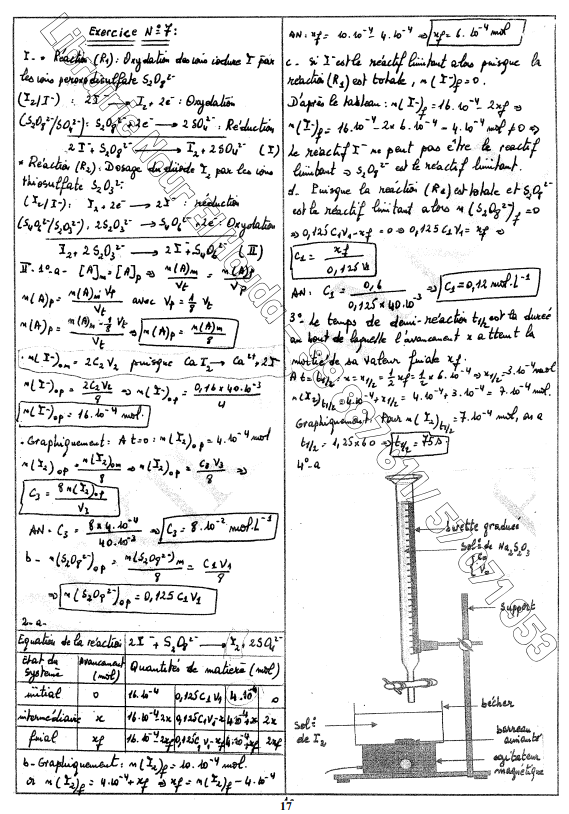 Exercice N° 7 :
I - • Réaction (R1) : Oxydation des ions iodure I⁻ par
les ions peroxodisulfate S₂O₈²⁻
(I₂/I⁻) : 2I⁻ → I₂ + 2e⁻ : Oxydation
(S₂O₈²⁻/SO₄²⁻) : S₂O₈²⁻ + 2e⁻ → 2SO₄²⁻ : Réduction
2I⁻ + S₂O₈²⁻ → I₂ + 2SO₄²⁻ (I)
* Réaction (R2) : Dosage du diiode I₂ par les ions
thiosulfate S₂O₃²⁻
(I₂/I⁻) : I₂ + 2e⁻ → 2I⁻ : réduction
(S₄O₆²⁻/S₂O₃²⁻) : 2S₂O₃²⁻ → S₄O₆²⁻ + 2e⁻ : Oxydation
I₂ + 2S₂O₃²⁻ → 2I⁻ + S₄O₆²⁻ (II)
II - 1° - a - [A]m = [A]p ⇒ n(A)m / Vt = n(A)p / Vp
n(A)p = n(A)m Vp / Vt avec Vp = 1/8 Vt
n(A)p = n(A)m · 1/8 Vt / Vt ⇒ n(A)p = n(A)m / 8
• n(I⁻)om = 2C₂V₂ puisque CaI₂ → Ca²⁺ + 2I⁻
n(I⁻)op = 2C₂V₂ / 8 ⇒ n(I⁻)op = 0,16 × 40.10⁻³ / 4
n(I⁻)op = 16.10⁻⁴ mol.
• Graphiquement : A t = 0 : n(I₂)op = 4.10⁻⁴ mol
n(I₂)op = n(I₂)om / 8 ⇒ n(I₂)op = C₃V₃ / 8 ⇒
C₃ = 8n(I₂)op / V₃
AN : C₃ = 8 × 4.10⁻⁴ / 40.10⁻³ ⇒ C₃ = 8.10⁻² mol.L⁻¹
b - n(S₂O₈²⁻)op = n(S₂O₈²⁻)m / 8 = C₁V₁ / 8
⇒ n(S₂O₈²⁻)op = 0,125 C₁V₁
2 - a -
Equation de la réaction 2I⁻ + S₂O₈²⁻ → I₂ + 2SO₄²⁻
Etat du système Avancement (mol) Quantités de matière (mol)
initial 0 16.10⁻⁴ 0,125C₁V₁ 4.10⁻⁴ 0
intermédiaire x 16.10⁻⁴-2x 0,125C₁V₁-x 4.10⁻⁴+x 2x
final xf 16.10⁻⁴-2xf 0,125C₁V₁-xf 4.10⁻⁴+xf 2xf
b - Graphiquement : n(I₂)f = 10.10⁻⁴ mol.
or n(I₂)f = 4.10⁻⁴ + xf ⇒ xf = n(I₂)f - 4.10⁻⁴
AN : xf = 10.10⁻⁴ - 4.10⁻⁴ ⇒ xf = 6.10⁻⁴ mol
c - Si I⁻ est le réactif limitant alors puisque la
réaction (R1) est totale, n(I⁻)f = 0.
D'après le tableau : n(I⁻)f = 16.10⁻⁴ - 2xf ⇒
n(I⁻)f = 16.10⁻⁴ - 2 × 6.10⁻⁴ = 4.10⁻⁴ mol ≠ 0 ⇒
Le réactif I⁻ ne peut pas être le réactif
limitant ⇒ S₂O₈²⁻ est le réactif limitant.
d. Puisque la réaction (R1) est totale et S₂O₈²⁻
est le réactif limitant alors n(S₂O₈²⁻)f = 0
⇒ 0,125 C₁V₁ - xf = 0 ⇒ 0,125 C₁V₁ = xf ⇒
C₁ = xf / 0,125 V₁
AN : C₁ = 0,6 / 0,125 × 40.10⁻³ ⇒ C₁ = 0,12 mol.L⁻¹
3° - Le temps de demi-réaction t1/2 est la durée
au bout de laquelle l'avancement x atteint la
moitié de sa valeur finale xf.
A t = t1/2 : x = x1/2 = 1/2 xf = 1/2 × 6.10⁻⁴ ⇒ x1/2 = 3.10⁻⁴ mol
n(I₂)t1/2 = 4.10⁻⁴ + x1/2 = 4.10⁻⁴ + 3.10⁻⁴ = 7.10⁻⁴ mol.
Graphiquement : Pour n(I₂)t1/2 = 7.10⁻⁴ mol, on a
t1/2 = 1,25 × 60 ⇒ t1/2 = 75 s
4° - a
burette graduée
Sol° de Na₂S₂O₃
C₀
V₀
support
bécher
Sol° de I₂
barreau aimanté
agitateur magnétique
17